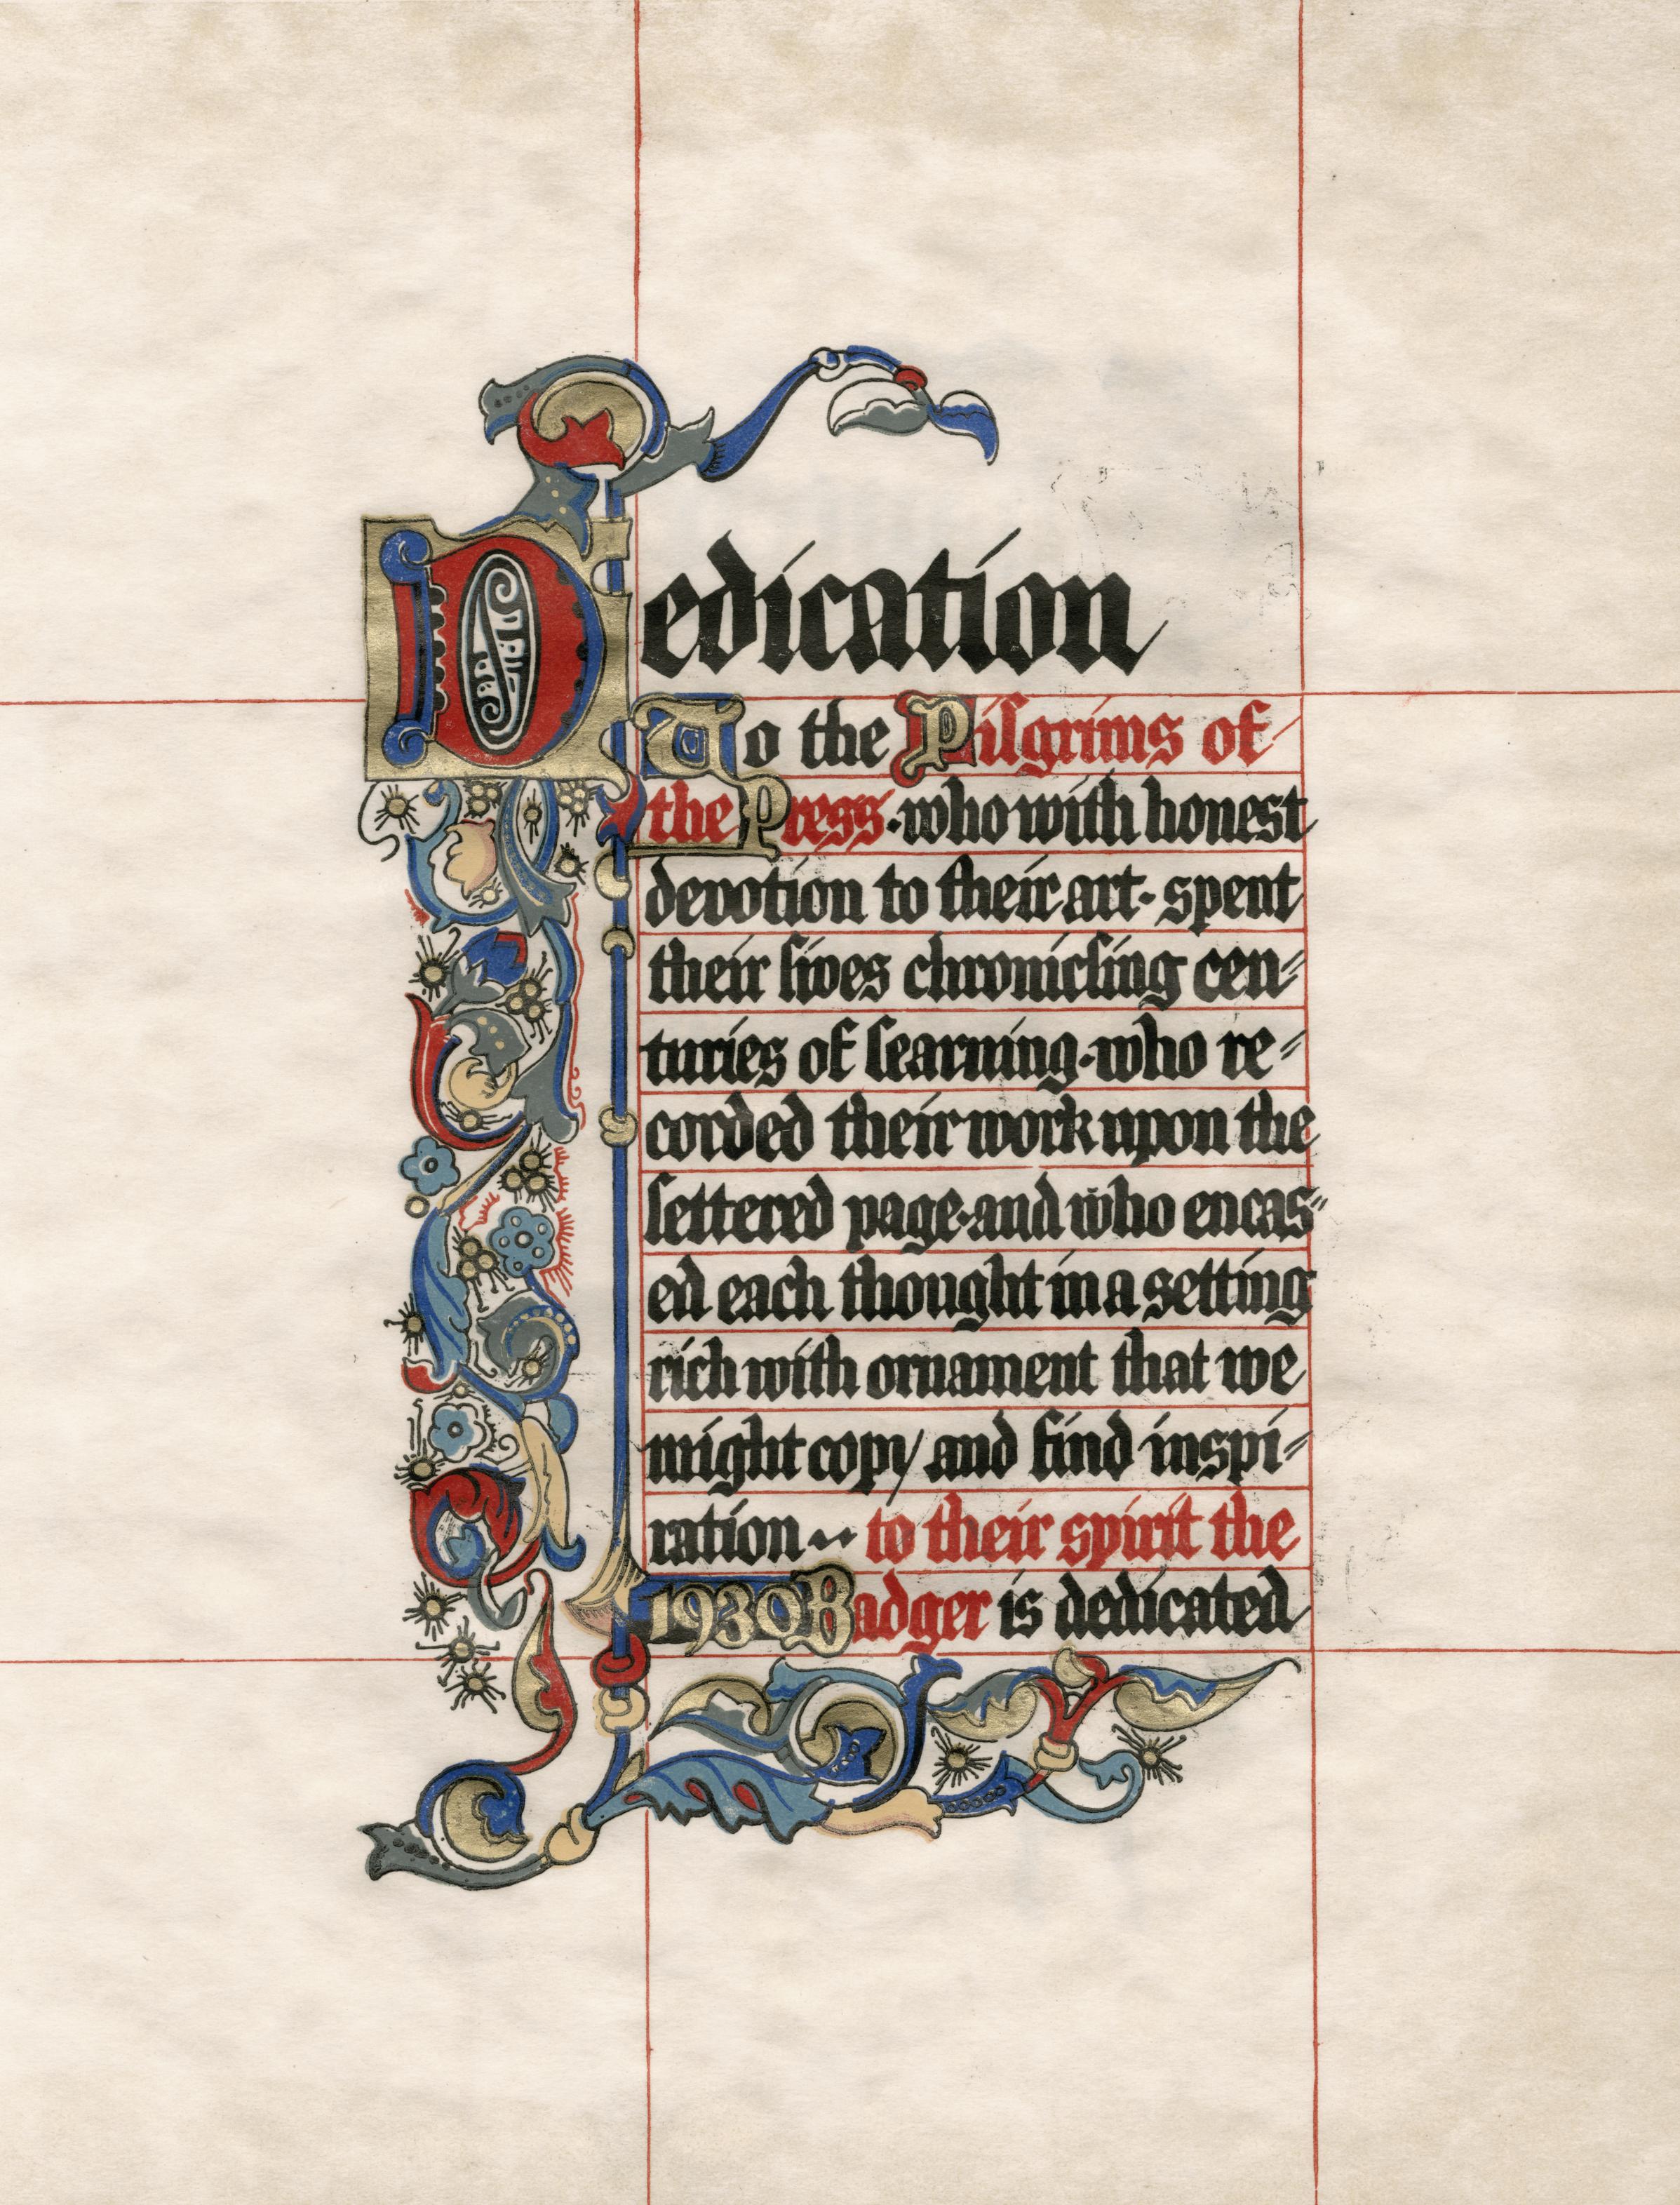 Dedication
To the Pilgrims of
the Press·who with honest
devotion to their art· spent
their lives chronicling cen=
turies of learning·who re=
corded their work upon the
lettered page·and who encas=
ed each thought in a setting
rich with ornament that we
might copy and find inspi=
ration ·· to their spirit the
1930 Badger is dedicated